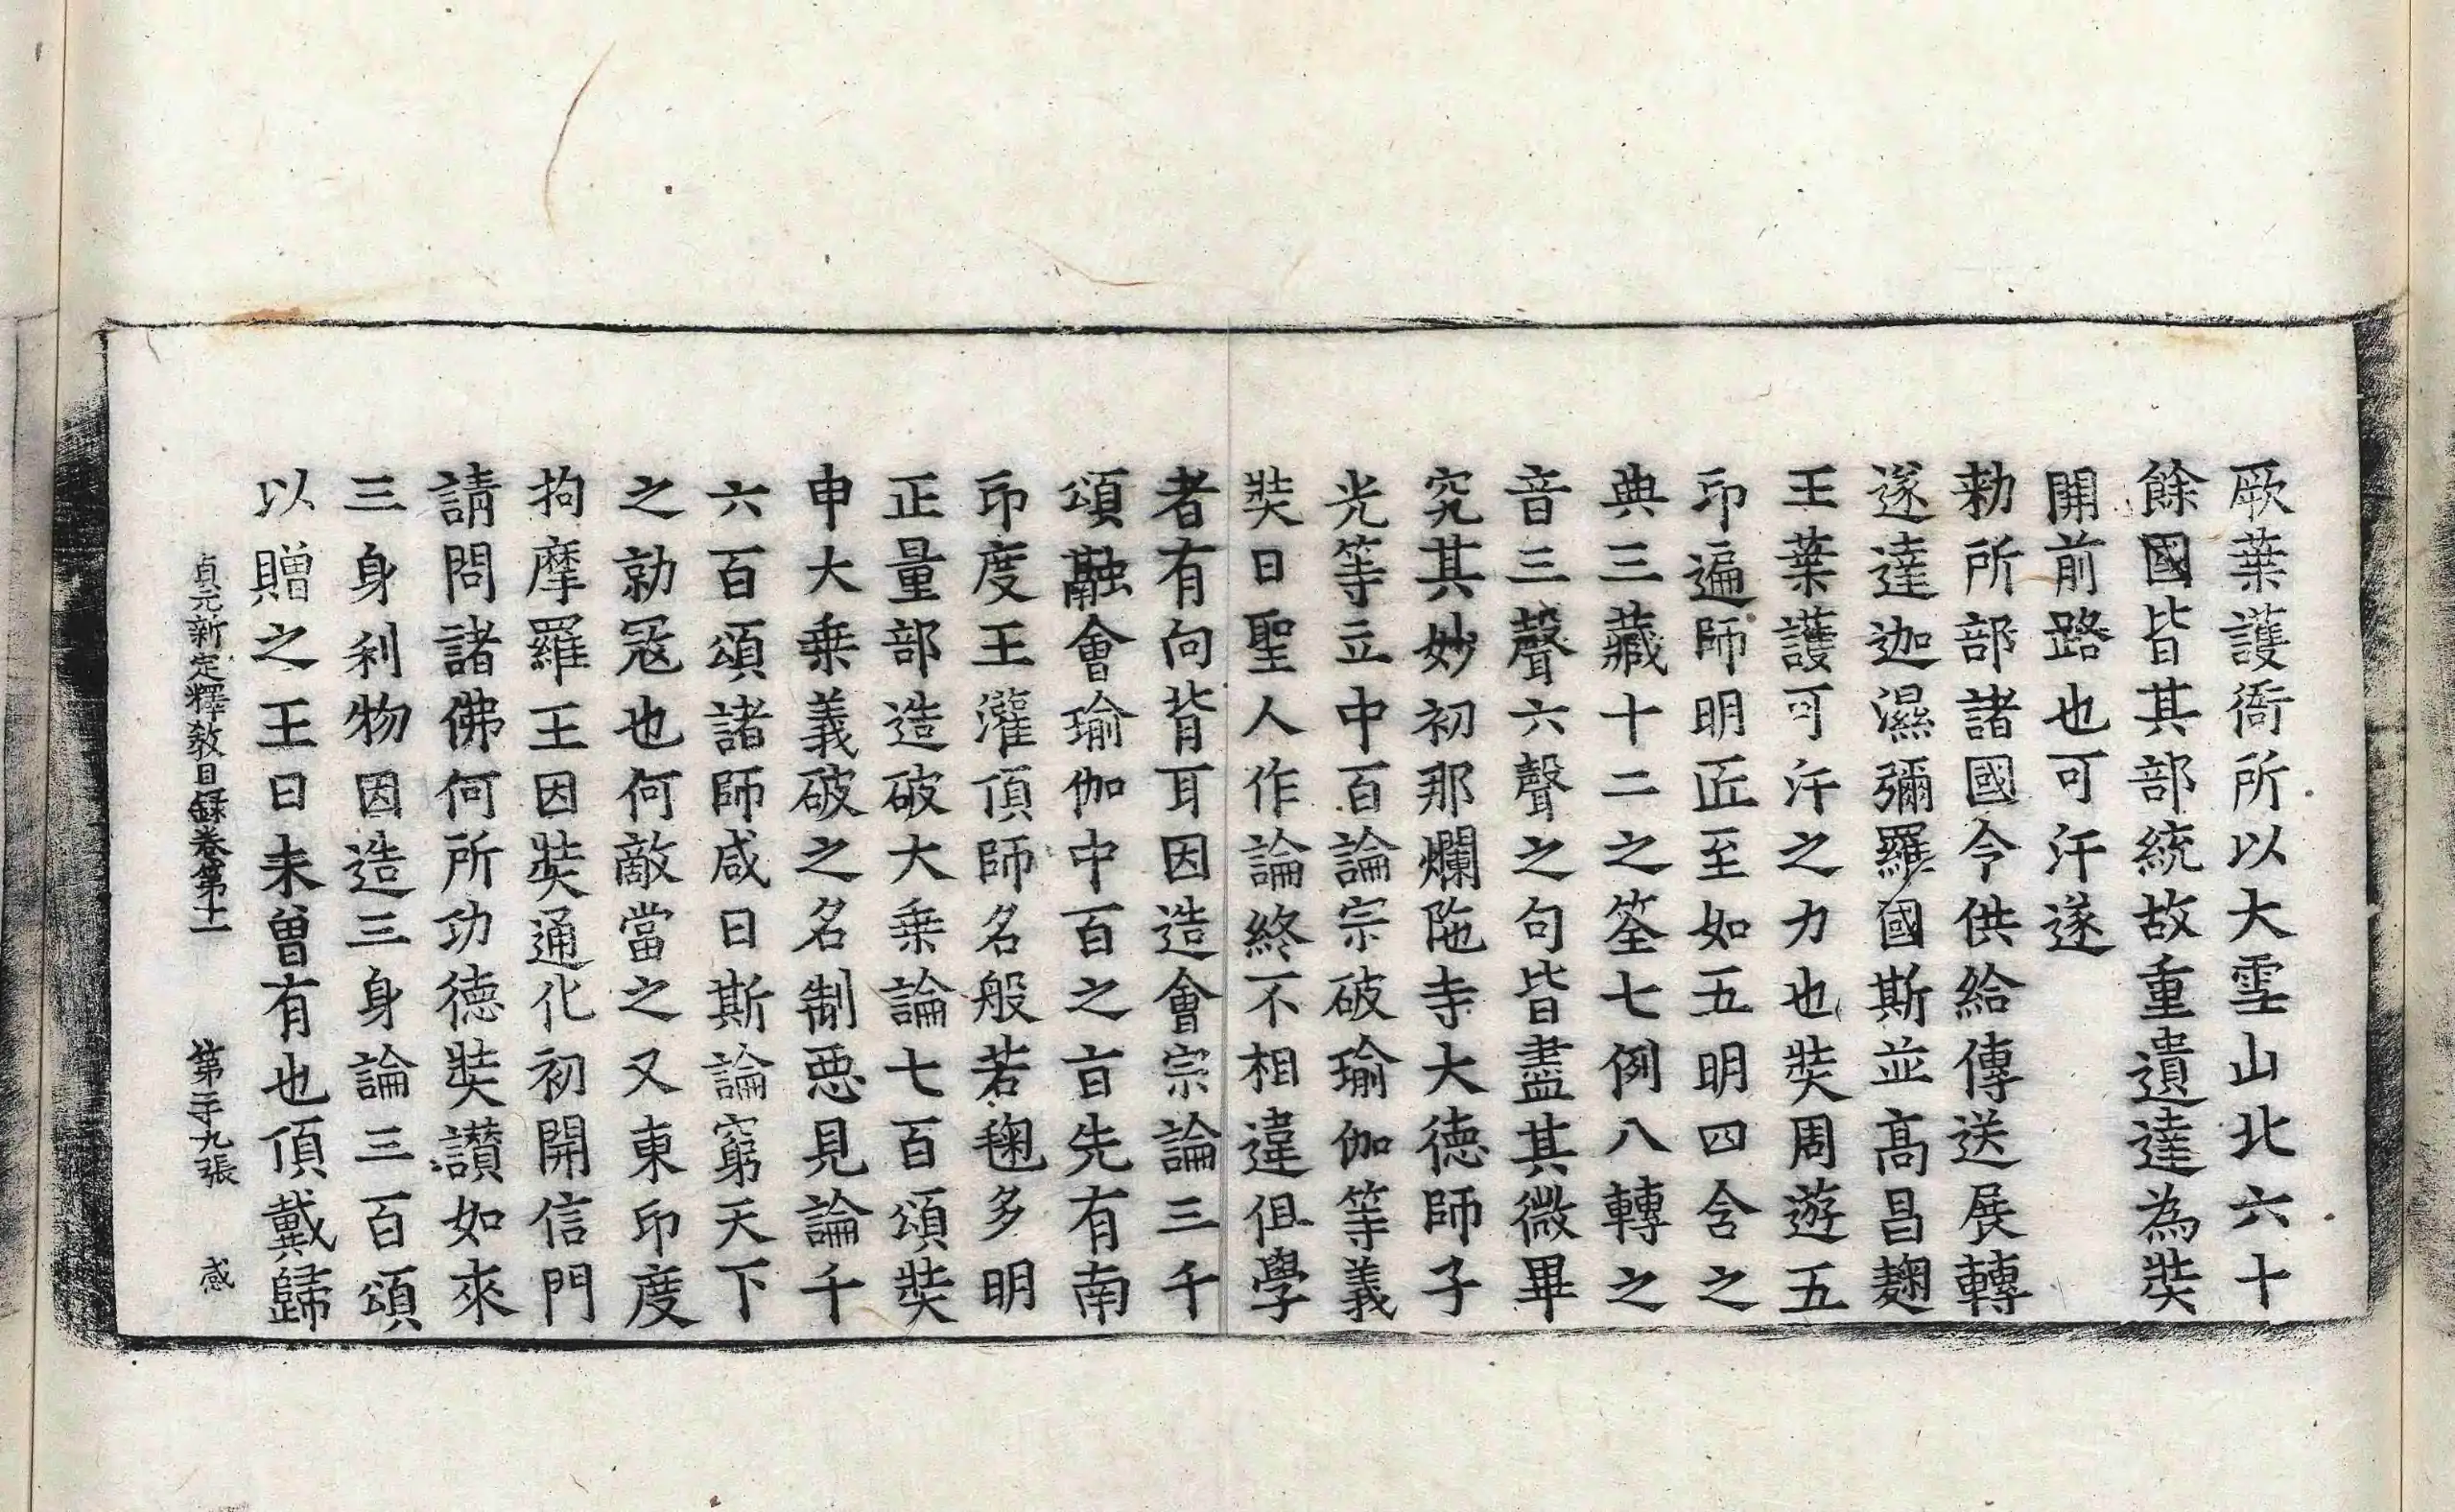 厥葉護衙所以大雪山北六十
餘國皆其部統故重遺達為奘
開前路也可汗遂
勑所部諸國令供給傳送展轉
遂達迦濕彌羅國斯並高昌麹
王葉護可汗之力也奘周遊五
印遍師明匠至如五明四含之
典三藏十二之筌七例八轉之
音三聲六聲之句皆盡其微畢
究其妙初那爛陁寺大德師子
光等立中百論宗破瑜伽等義
奘曰聖人作論終不相違但學
者有向背耳因造會宗論三千
頌融會瑜伽中百之旨先有南
印度王灌頂師名般若毱多明
正量部造破大乗論七百頌奘
申大乗義破之名制惡見論千
六百頌諸師咸曰斯論窮天下
之勍冦也何敵當之又東印度
拘摩羅王因奘通化初開信門
請問諸佛何所功德奘讃如來
三身利物因造三身論三百頌
以贈之王曰未曽有也頂戴歸
貞元新定釋敎目錄卷第十一 第二十九張 感